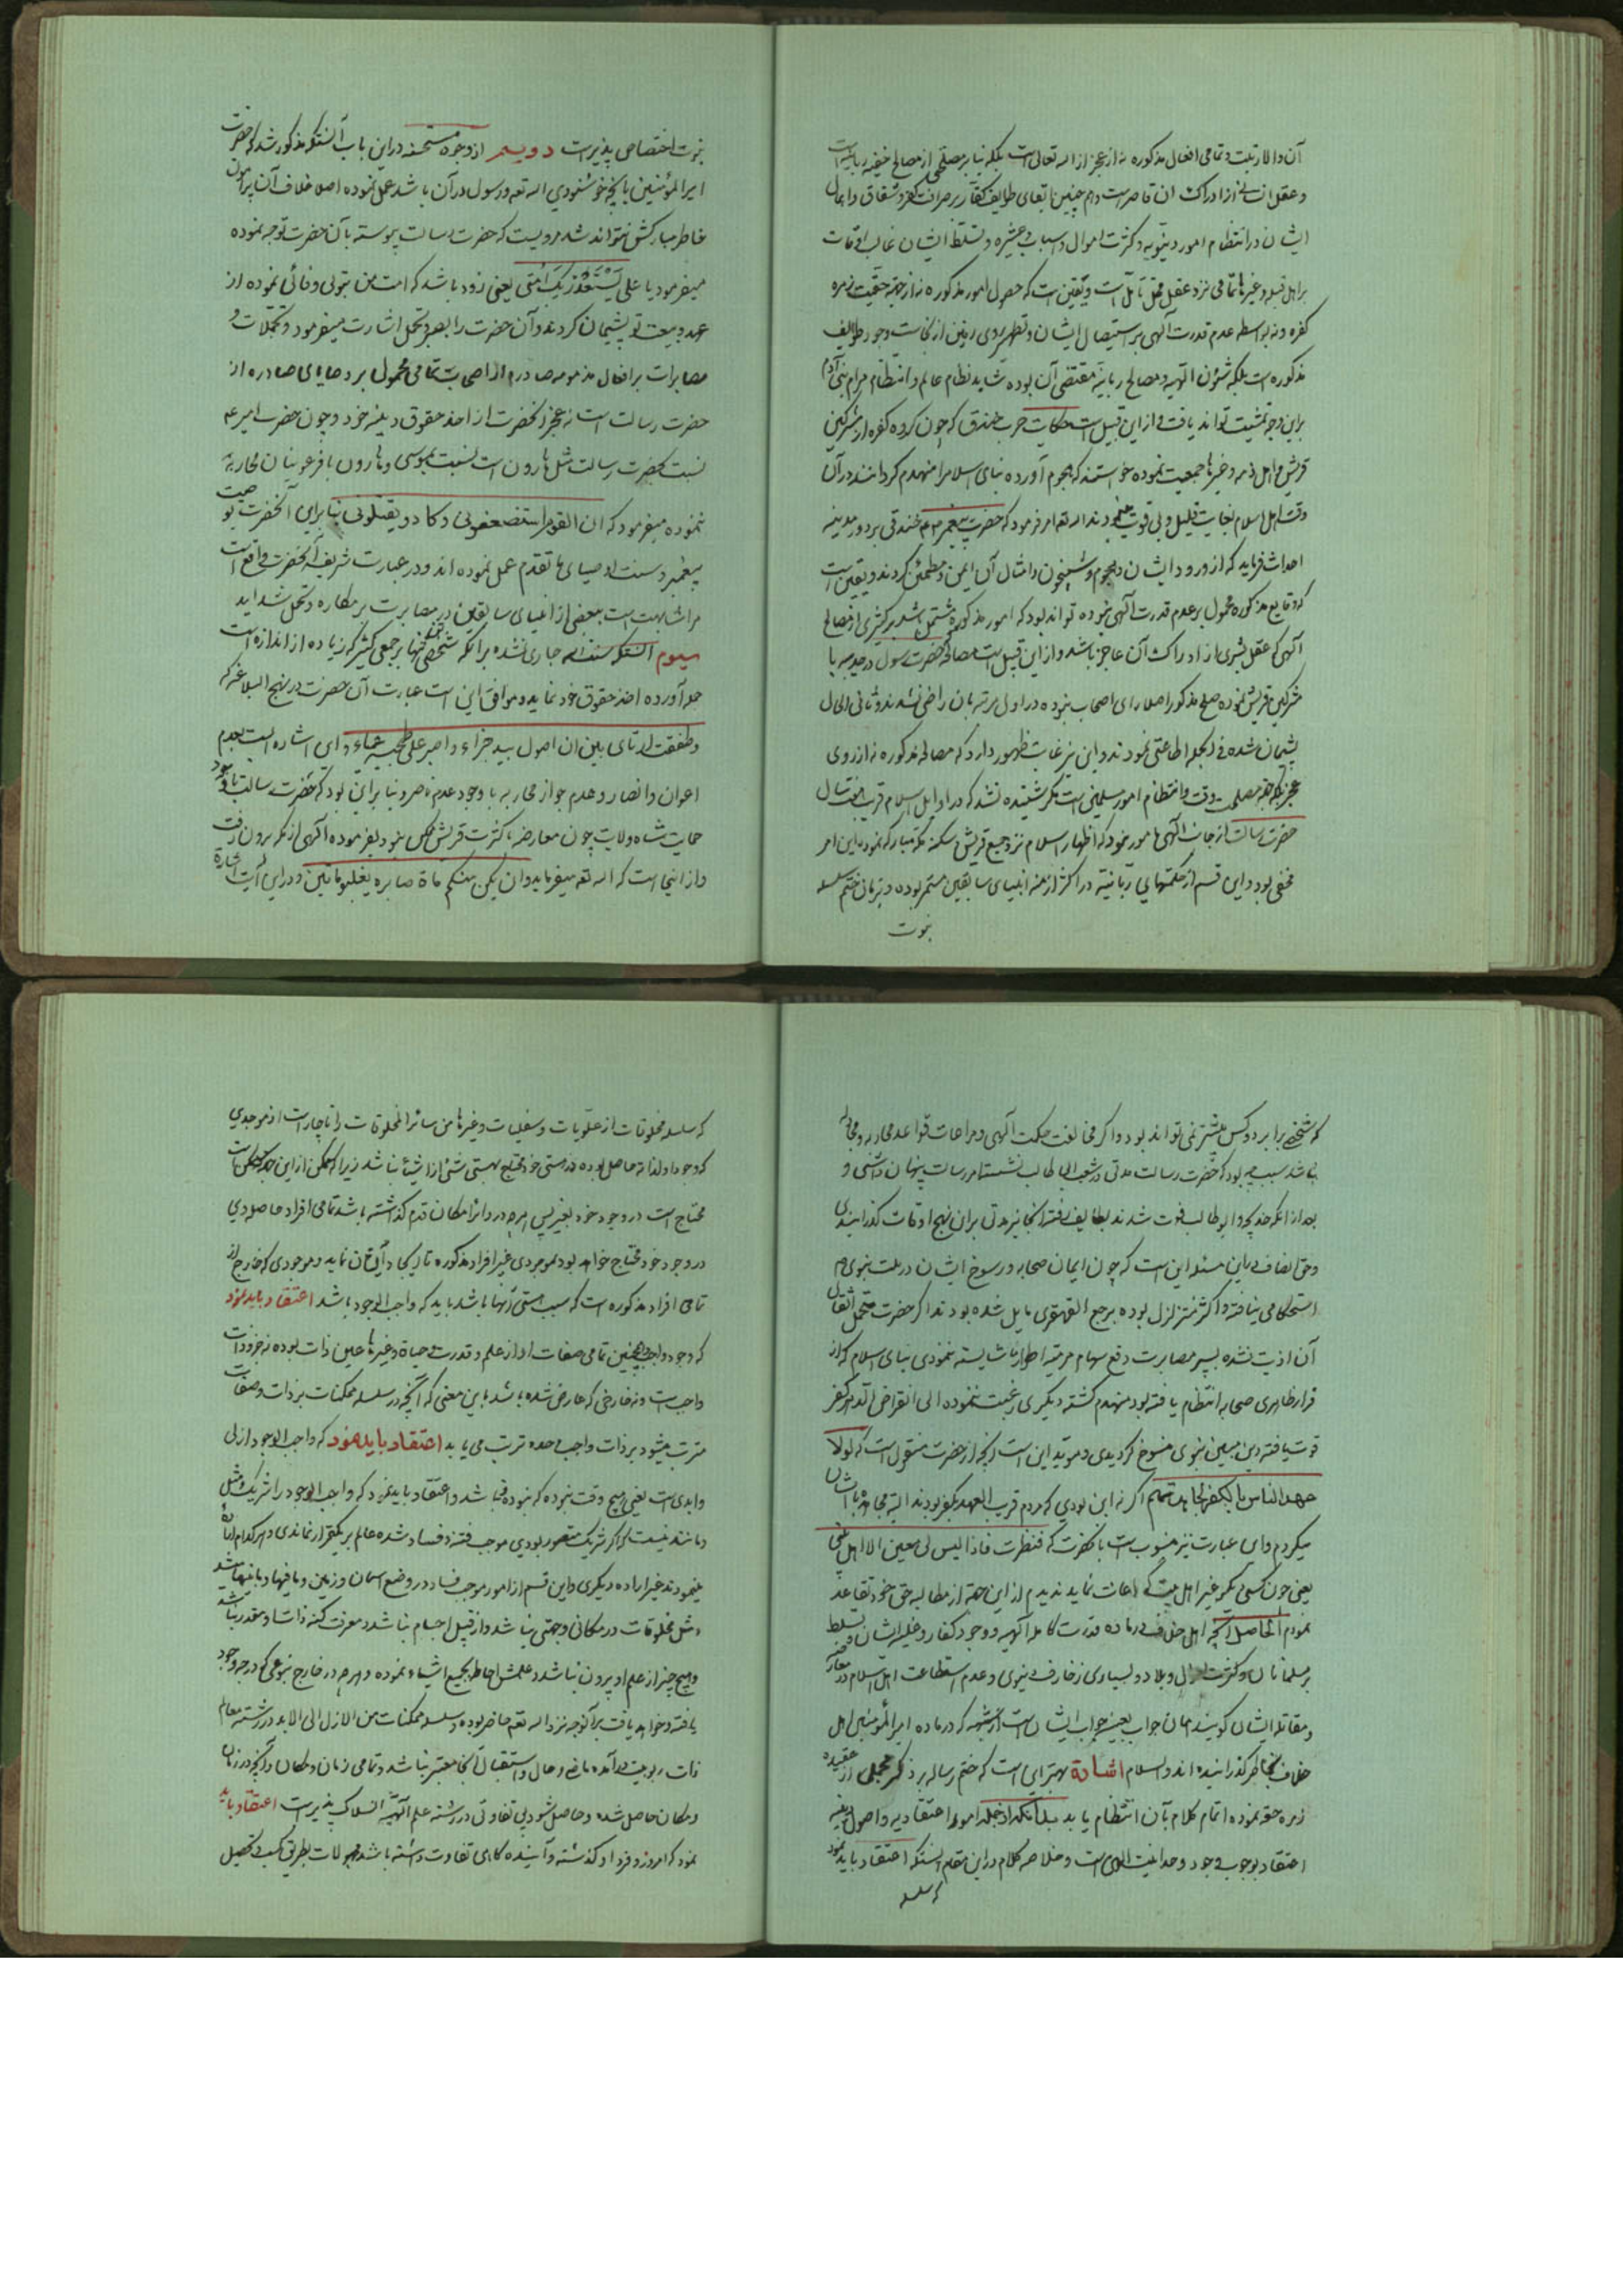 آن والا رتبت و تمامی افعال مذکوره نه از عجز از اله تعالی است بلکه بنا بر مصلحتی از مصالح خفیه ربانیه است
و عقل انسانی از ادراک ان قاصر است و هم چنین ابقای طوایف کفار بر صرافت کفر و شقاق و امهال
ایشان در انتظام امور دنیویه و کثرت اموال و اسباب و عشیره و تسلط ایشان غالب اوقات
بر اهل قبله و غیرها تمامی نزد عقل محل تأمل است و یقین است که حصول امور مذکوره نه از جهة حقیت زمره
کفره و نه بواسطه عدم قدرت آلهی بر استیصال ایشان و تطهیر روی زمین از نجاست وجود طوایف
مذکوره است بلکه شئون الهیه و مصالح ربانیه مقتضی آن بوده شاید نظام عالم و انتظام مرام بنی آدم
براین وجه تمشیت تواند یافت و از این قبیل است حکایت حرب خندق که چون کرده کفره از مشرکین
قریش و اهل ذمه و غیرها جمعیت نموده خواستند که هجوم آورده بنای اسلام را منهدم کردانند در آن
وقت اهل اسلام بغایت قلیل و بی قوت بودند اله تعم امر فرمود که حضرت پیغمبر خندقی بر دور مدینه
احداث فرماید که از ورود ایشان و هجوم و شبیخون و امثال آن ایمن و مطمئن کردند و یقین است
که وقایع مذکوره محمول بر عدم قدرت آلهی نبوده تواند بود که امور مذکوره مشتمل باشد بر کثیری از مصالح
آلهی که عقل بشری از ادراک آن عاجز باشد و از این قبیل است مصالحه حضرت رسول در حدیبیه با
مشرکین قریش نموده صلح مذکور اصلا رای اصحاب نبوده در اول مرتبه بان راضی نشدند و ثانی الحال
پشیمان شده فی الجمله اطاعتی نمودند و این نیز غایت ظهور دارد که مصالحه مذکوره نه از روی
عجز بلکه جهة مصلحت وقت و انتظام امور مسلمین است مکر شنیده نشد که در اوایل اسلام قریب بهفت سال
حضرت رسالت از جانب آلهی مامور نبود که اظهار اسلام نزد جمیع قریش و سکنه مکه مبارکه نموده این امر
مخفی بود و این قسم از حکمتهای ربانیه در اکثر ازمنه انبیای سابقین مستمر بوده و بزمان ختم سلسله
نبوت
نبوت اختصاص پذیر است دویم از وجوه مستحسنه در این باب آنستکه مذکور شد که حضرت
امیر المؤمنین بانچه خوشنودی اله تعم و رسول در آن باشد عمل نموده اصلا خلاف آن پیرامون
خاطر مبارکش نتواند شد مرویست که حضرت رسالت پیوسته بآن حضرت توجه نموده
میفرمود یا علی ستغدر بک امتی یعنی زود باشد که امت من بتو بی وفائی نموده از
عهد و بیعت تو پشیمان کردند و آن حضرت را بصبر و تحمل اشارت میفرمود و تحملات و
مصابرات بر افعال مذمومه صادره از اصحاب تمامی محمول بر وصایای صادره از
حضرت رسالت است نه عجز آنحضرت از اخذ حقوق دینیه خود و چون حضرت امیر عم
نسبت بحضرت رسالت مثل هارون است نسبت بموسی و هارون با فرعونیان محاربه
ننموده میفرمود که ان القوم استضعفونی و کادو یقتلونی بنا برای آنحضرت بوصیت
پیغمبر و سنت اوصیای ما تقدم عمل نموده اند و در عبارت شریفه آنحضرت واقع است
مرا مشابهت است ببعضی از انبیای سابقین در مصابرت بر مکاره و تحمل شداید
سیوم آنستکه سنت اله جاری نشده بر انکه شخصی تنها بر جمعی کثیر که زیاده از اندازه است
حمله آورده اخذ حقوق خود نماید و موافق این است عبارت آن حضرت در نهج البلاغه که
و طفقت ارتای بین ان اصول بید جزاء و اصبر علی طخیه عمیاء و ای اشاره است بعدم
اعوان و انصار و عدم جواز محاربه با وجود عدم ناصر و بنا براین بود که حضرت رسالت با وجود
حمایت شاه ولایت چون معارضه با کثرت قریش ممکن نبود بفرموده آلهی از مکه برون رفت
و از اینجا است که اله تعم میفرماید و ان یکن منکم مأة صابره یغلبو مأتین و در این آیت اشارة
که شخصی برابر دو کس بیشتر نمی تواند بود و اگر مخالفت حکمت آلهی و مراعات قواعد محاربه و مجادله
نباشد سبب چه بود که حضرت رسالت مدتی در شعب ابی طالب نشسته امر رسالت پنهان داشتی و
بعد از انکه خدیجه و ابو طالب فوت شدند بطایف رفته انجا نیز مدتی بران نهج اوقات کذرانیدی
و حق انصاف در این مسئله این است که چون ایمان صحابه و رسوخ ایشان در ملت نبوی
استحکامی نیافته و اکثر متزلزل بوده برجع القهقری مایل شده بودند اگر حضرت متحمل اثقال
آن اذیت نشده بسپر مصابرت دفع سهام مرمیه اطوار ناشایسته ننمودی بنای اسلام که از
قرار ظاهری صحابه انتظام یافته بود منهدم کشته دیکری رغبت ننموده الی انقراض الدهر کفر
قوت یافته دین مبین نبوی منسوخ کردیدی و موید این است انچه از حضرت منقول است که لولا
عهد الناس بالکفر لجاهدتهم اگر نه این بودی که مردم قریب العهد بکفر بودند البته مجاهده با ایشان
میکردم و ای عبارت نیز منسوب است بانحضرت که فنظرت فاذا لیس لی معین الا اهل بیتی
یعنی چون کسی دیکر غیر اهل بیت که اعانت نماید ندیدم از این جهة از مطالبه حق خود تقاعد
نمودم الحاصل انچه اهل خلاف در ماده قدرت کامله آلهیه و وجود کفار و غلبه ایشان و تسلط
بر مسلمانان و کثرت اموال و بلاد و بسیاری زخارف دنیوی و عدم استطاعت اهل اسلام در
و مقاتله ایشان کویند همان جواب بعینه جواب ایشان است از شبهه که در ماده امیر المؤمنین اهل
خلاف بخاطر کذرانیده اند و السلام اشارة بهتر ای است که ختم رساله بر ذکر مجملی از عقیده
زمره حقه نموده اتمام کلام بآن انتظام یابد بدانکه از جمله امور اعتقادیه و اصول دینیه
اعتقاد بوجوب وجود و وحدانیت الهی است و خلاصه کلام در این مقام انستکه اعتقاد باید نمود
که سلسله
که سلسله مخلوقات از علویات و سفلیات و غیرها من سائر المخلوقات را ناچار است از موجدی
که وجود او لذاته حاصل بوده در هستی خود محتاج بهستی شئی از اشیاء نباشد زیرا که ممکن از این جهة که ممکن است
محتاج است در وجود خود بغیر پس هرچه در دایرۀ امکان قدم کذاشته باشد تمامی افراد حاصله وی
در وجود خود محتاج خواهد بود بموجودی غیر افراد مذکوره تا ایجاد آن نماید و موجودی که خارج از
تمامی افراد مذکوره است که سبب هستی آنها باشد باید که واجب الوجود باشد اعتقاد باید نمود
که وجود واجب و همچنین تمامی صفات او از علم و قدرت و حیاة و غیرها عین ذات بوده نه جزو ذات
واجب است و نه خارجی که عارض شده باشد باین معنی که آنچه در سلسله ممکنات بر ذات و صفات
مترتب میشود بر ذات واجب وحده ترتب می یابد اعتقاد باید نمود که واجب الوجود ازلی
و ابدی است یعنی هیچ وقت نبوده که نبوده و نباشد و اعتقاد باید نمود که واجب الوجود را شریک و مثل
و مانند نیست که اگر شریک متصور بودی موجب فتنه و فساد شده عالم بر یکقرار نماندی و هر کدام اراده
مینمودند غیر اراده دیکری و این قسم از امور موجب فساد در وضع اسمان و زمین و مافیها و مابینهما میشد
و مثل مخلوقات در مکانی و جهتی نباشد و از قبیل اجسام نباشد و معرفت کنه ذاتش مقدور نباشد
و هیچ چیز از علم او بیرون نباشد و علمش احاطه بجمیع اشیاء نموده و هرچه در خارج بنوعی که درجه وجود
یافته و خواهد یافت بر آنوجه نزد اله تعم حاضر بوده و سلسله ممکنات من الازل الی الابد در رشته معالم
ذات ربوبیت در آمده ماضی و حال و استقبال آنجا معتبر نباشد و تمامی زمان و مکان و آنچه در زمان
و مکان حاصل شده و حاصل شود بی تفاوتی در رشته علم آلهیه انسلاک پذیر است اعتقاد باید
نمود که امروز و فردا و کذشته و آینده کاهی تفاوت داشته باشد مجهولات بطریق کسب و تحصیل